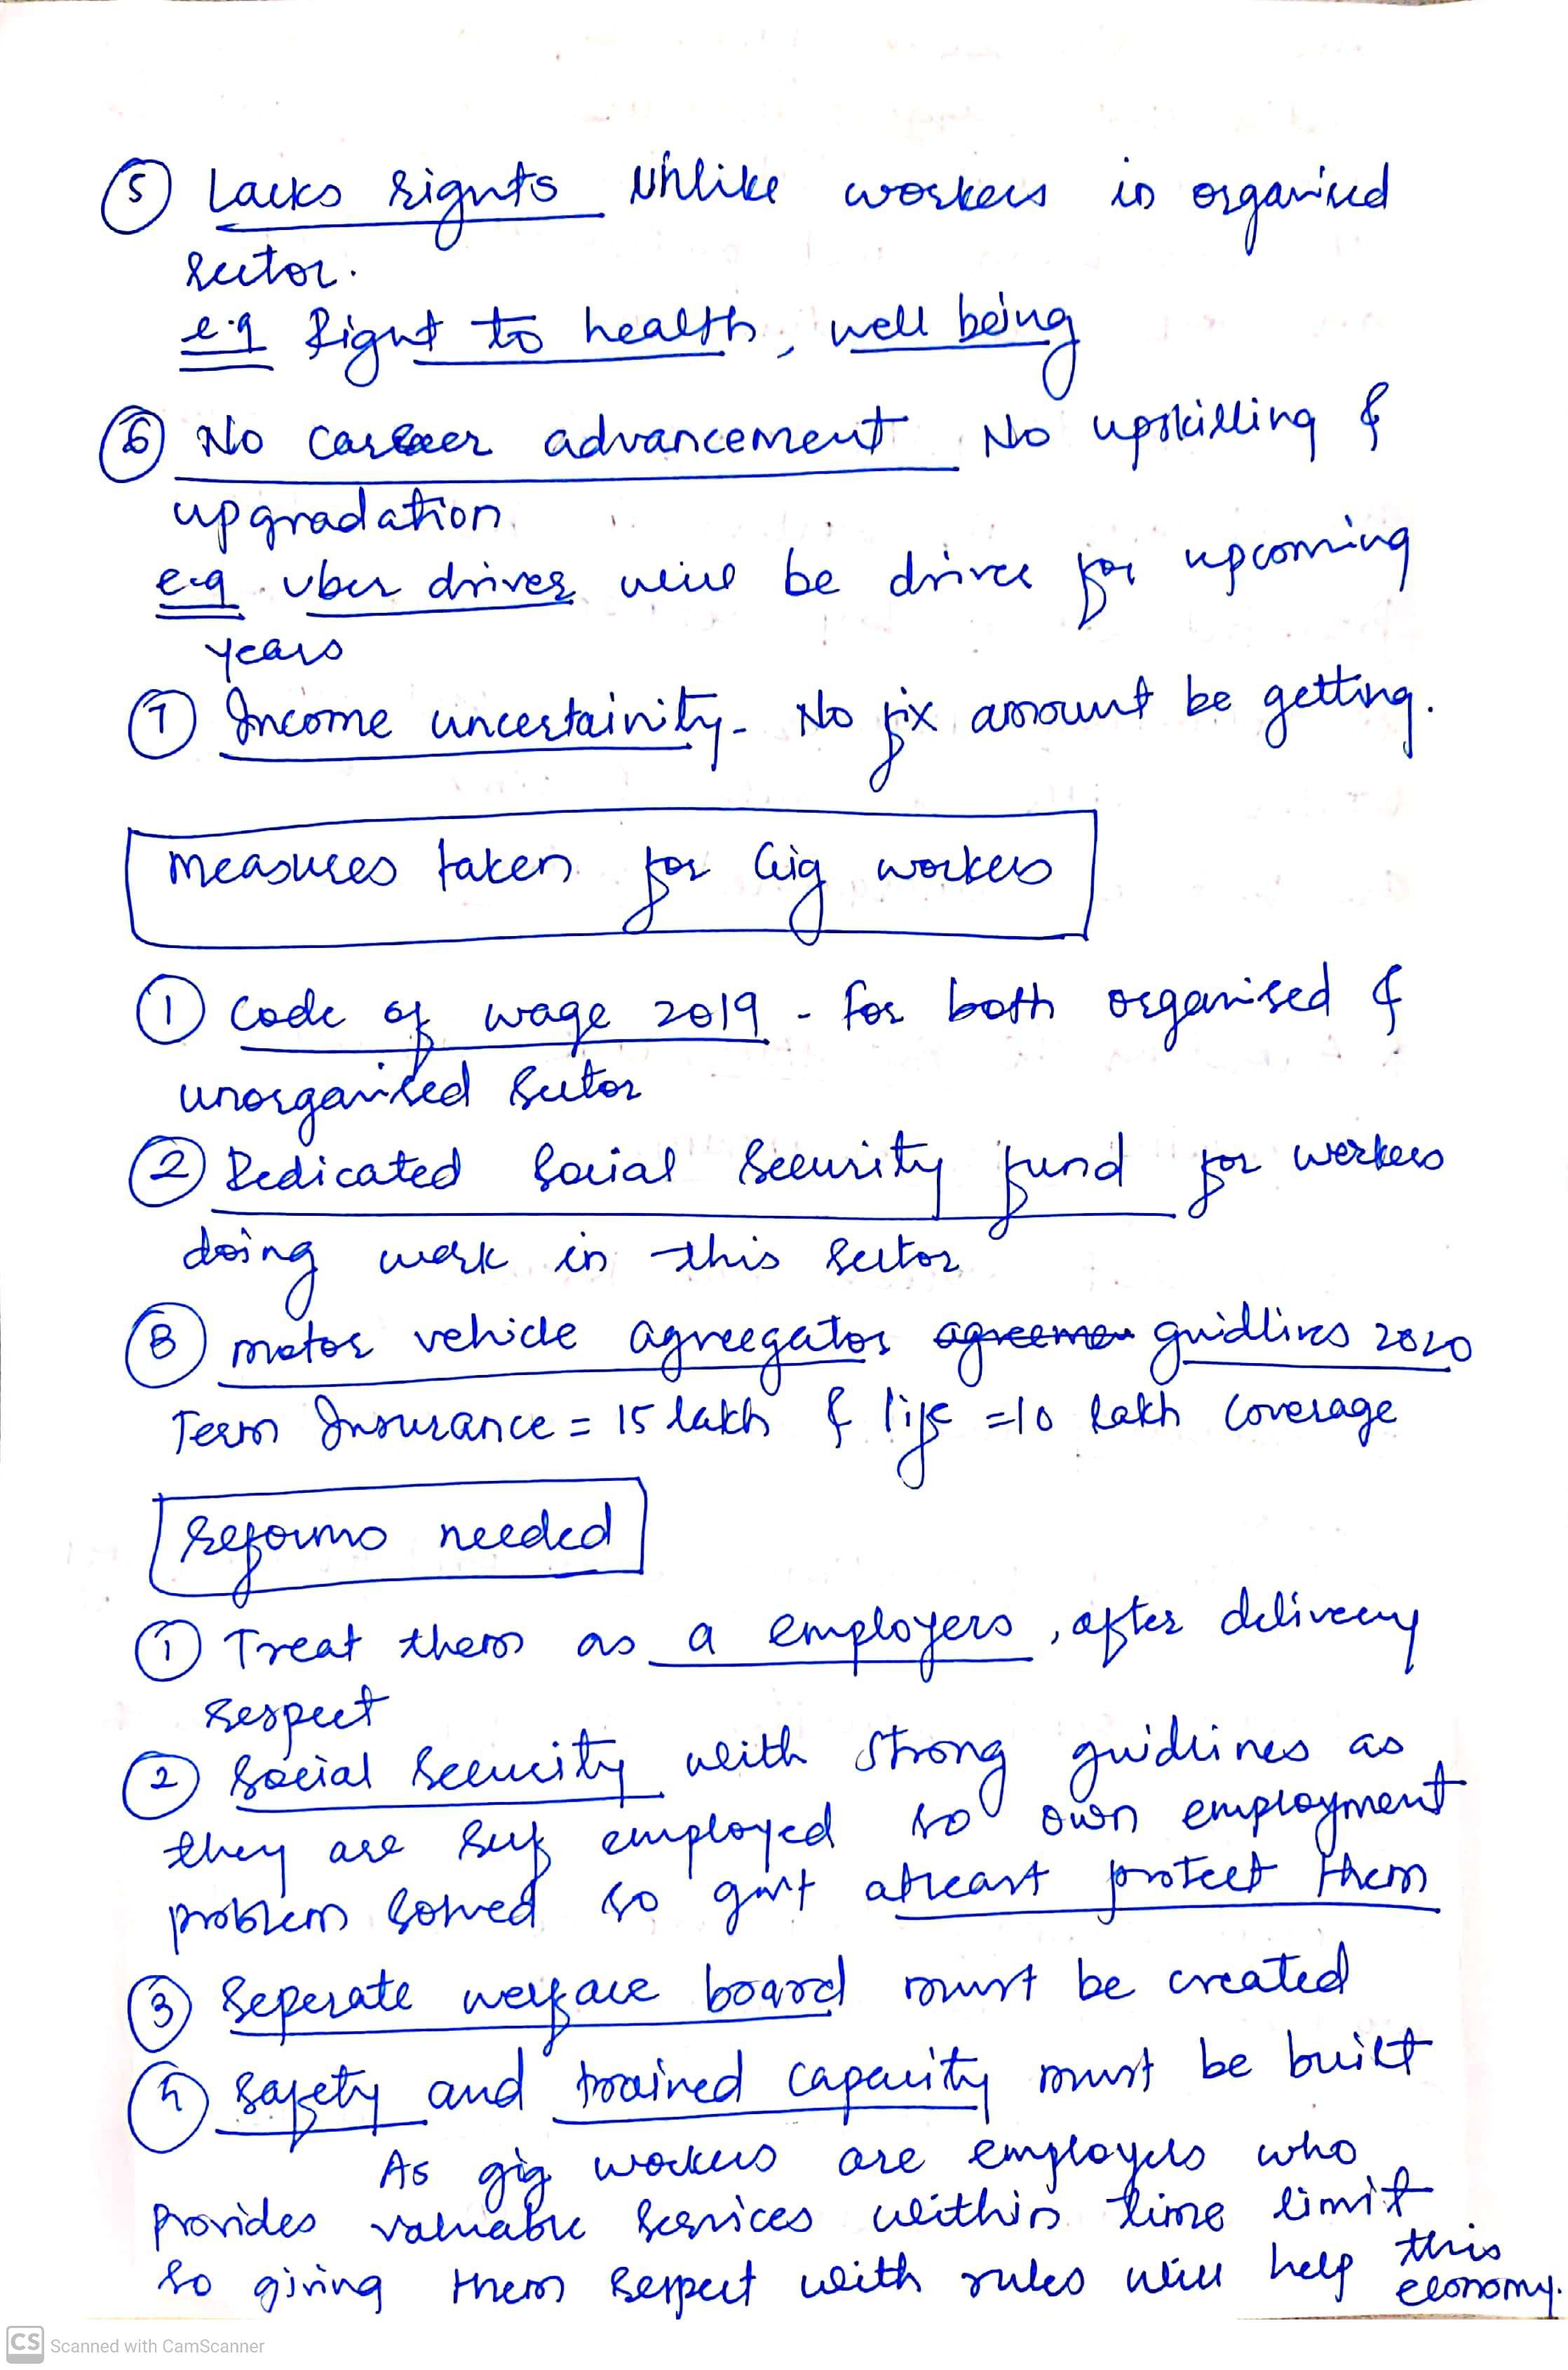 ⑤ Lacks rights unlike workers in organised
sector.
e.g Right to health, well being
⑥ No career advancement No upskilling &
upgradation
e.g uber driver will be driver for upcoming
years
⑦ Income uncertainity - No fix amount be getting.
Measures taken for Gig workers
① Code of wage 2019 - for both organised &
unorganised sector
② Dedicated social security fund for workers
doing work in this sector
③ motor vehicle agreegator agreemen guidlines 2020
Term Insurance = 15 lakh & life = 10 lakh coverage
Reforms needed
① Treat them as a employers, after delivery
respect
② Social security with strong guidlines as
they are self employed so own employment
problem solved so govt atleast protect them
③ Seperate welfare board must be created
④ Safety and trained capacity must be built
As gig workers are employers who
provides valuable services within time limit
so giving them respect with rules will help this
economy.
CS Scanned with CamScanner